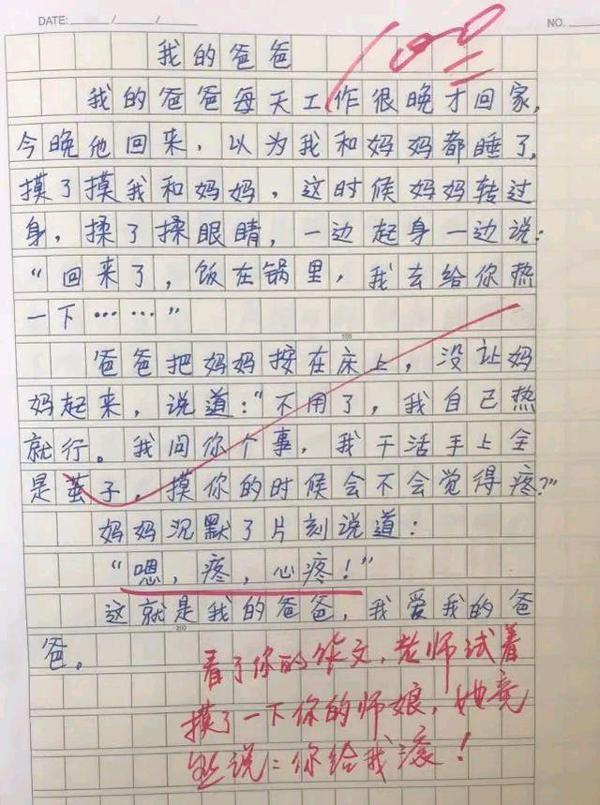 DATE: / /
NO.
100
我的爸爸
我的爸爸每天工作很晚才回家,
今晚他回来,以为我和妈妈都睡了,
摸了摸我和妈妈,这时候妈妈转过
身,揉了揉眼睛,一边起身一边说:
“回来了,饭在锅里,我去给你热
一下……”
爸爸把妈妈按在床上,没让妈
妈起来,说道:“不用了,我自己热
就行。我问你个事,我干活手上全
是茧子,摸你的时候会不会觉得疼?”
妈妈沉默了片刻说道:
“嗯,疼,心疼!”
这就是我的爸爸,我爱我的爸
爸。
看了你的作文,老师试着
摸了一下你的师娘,她竟
然说:你给我滚!